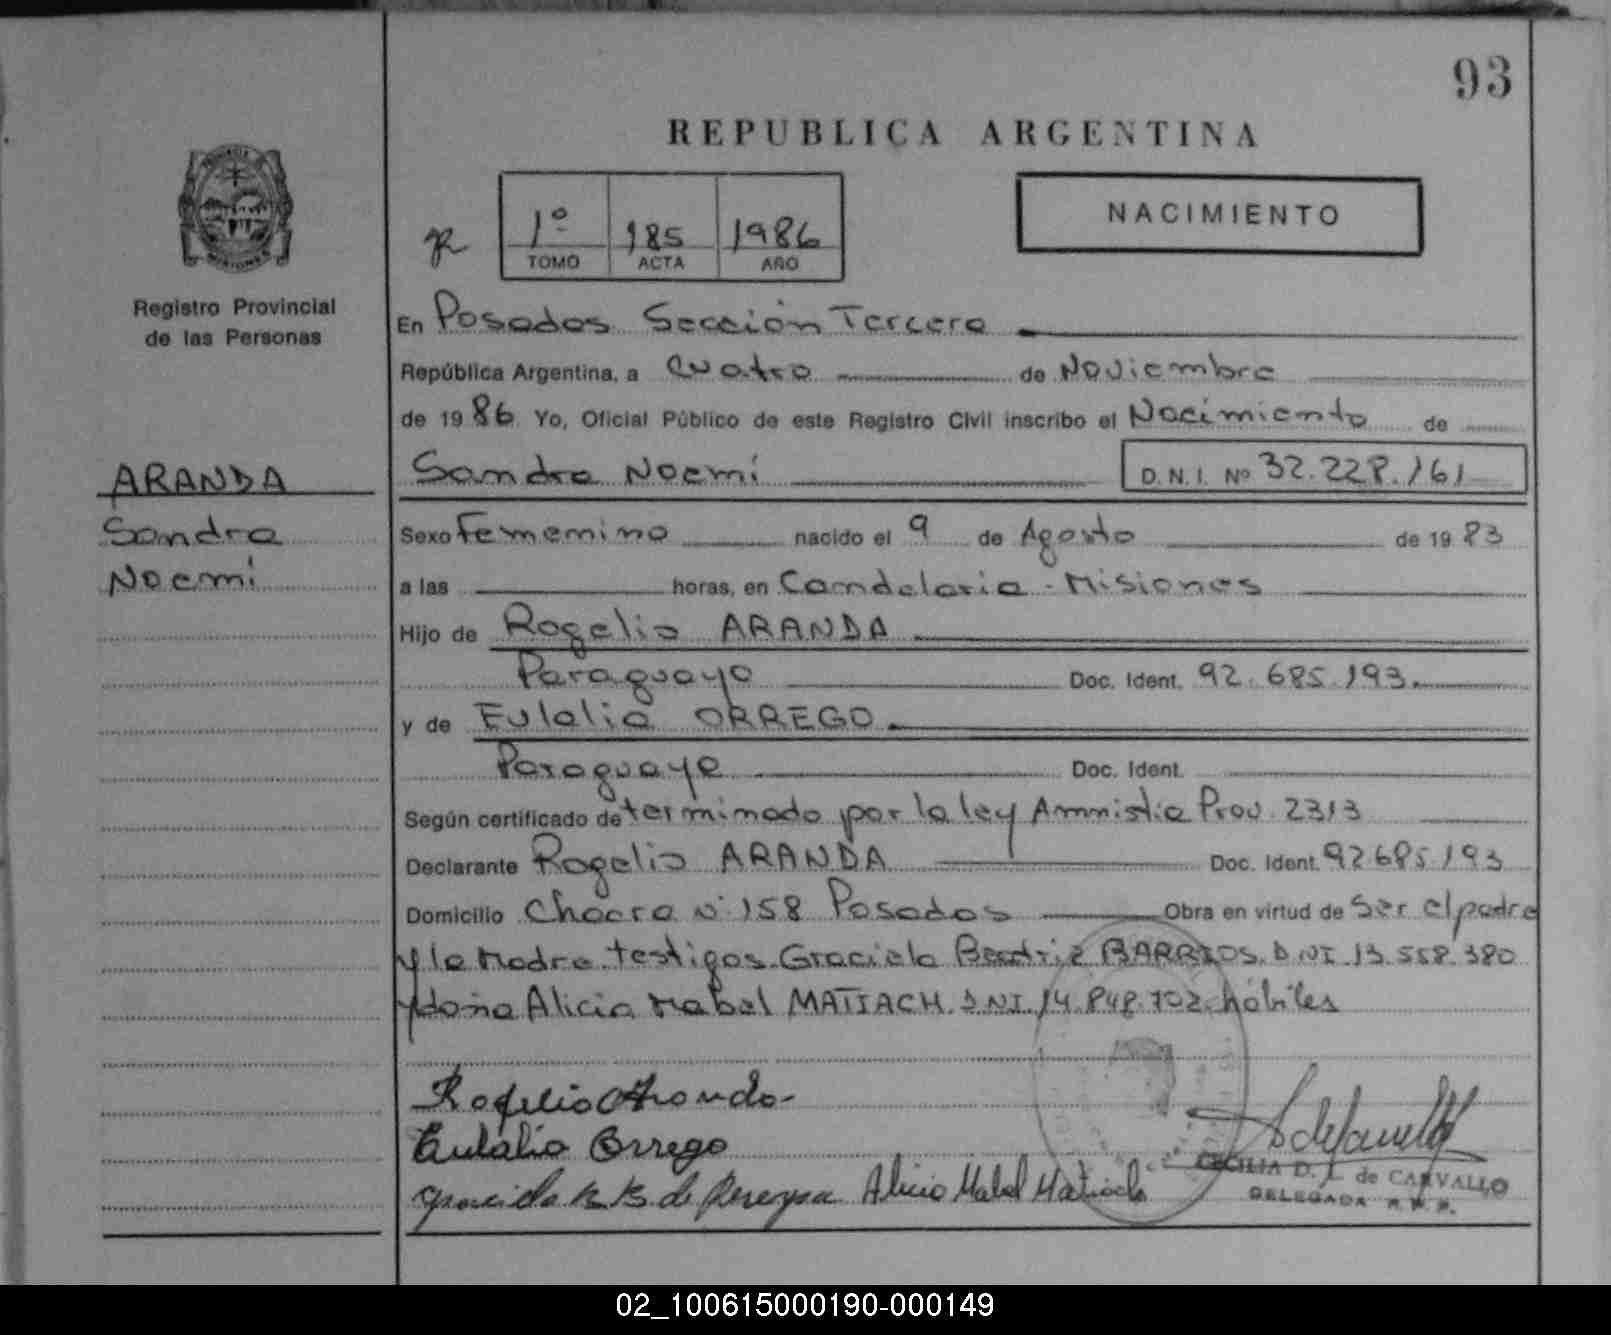 93
REPUBLICA ARGENTINA
PROVINCIA DE MISIONES
Registro Provincial
de las Personas
1º 185 1986
TOMO ACTA AÑO
NACIMIENTO
En Posadas Sección Tercera
República Argentina, a Cuatro de Noviembre
de 1986 Yo, Oficial Público de este Registro Civil inscribo el Nacimiento de
Sandra Noemí D.N.I. Nº 32.228.161
ARANDA
Sandra
Noemí
Sexo Femenino nacido el 9 de Agosto de 1983
a las horas, en Candelaria - Misiones
Hijo de Rogelio ARANDA
Paraguayo Doc. Ident. 92.685.193.
y de Eulalia ORREGO
Paraguaya Doc. Ident.
Según certificado de terminado por la ley Amnistia Prov. 2313
Declarante Rogelio ARANDA Doc. Ident. 92685193
Domicilio Chacra Nº 158 Posadas Obra en virtud de Ser el padre
y la Madre. testigos. Graciela Beatriz BARRIOS. DNI. 13.558.380
y doña Alicia Mabel MATIACH. DNI. 14.848.702 hábiles
Rogelio Aranda
Eulalia Orrego
Graciela B. B. de Pereyra Alicia Mabel Matiach
CECILIA D. L. de CARVALLO
DELEGADA R.P.P.
02_100615000190-000149